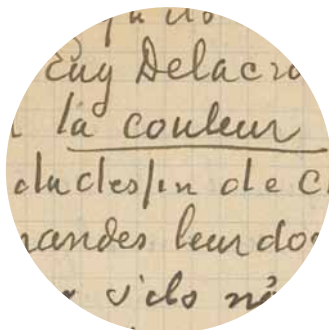 Eug Delacro
la couleur
du dessin de C
mandes leur do
s'ils n'